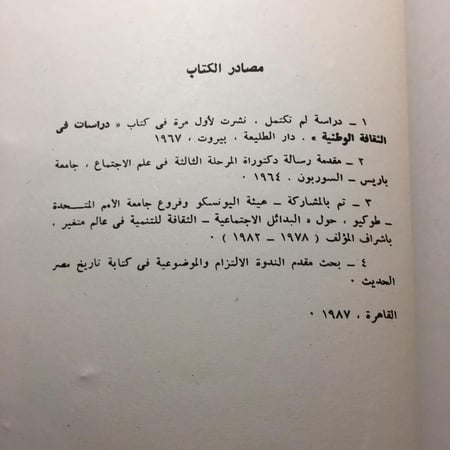 مصادر الكتاب
١ ــ دراسة لم تكتمل ، نشرت لأول مرة فى كتاب « دراسات فى
الثقافة الوطنية » . دار الطليعة ، بيروت ، ١٩٦٧
٢ ــ مقدمة رسالة دكتوراة المرحلة الثالثة فى علم الاجتماع ، جامعة
باريس ــ السوربون ، ١٩٦٤ ٠
٣ ــ تم بالمشاركة ــ هيئة اليونسكو وفروع جامعة الأمم المتحدة
ــ طوكيو ، حول « البدائل الاجتماعية ــ الثقافة للتنمية فى عالم متغير ،
باشراف المؤلف ( ١٩٧٨ ــ ١٩٨٢ ) ٠
٤ ــ بحث مقدم الندوة الالتزام والموضوعية فى كتابة تاريخ مصر
الحديث ٠
القاهرة ، ١٩٨٧ ٠